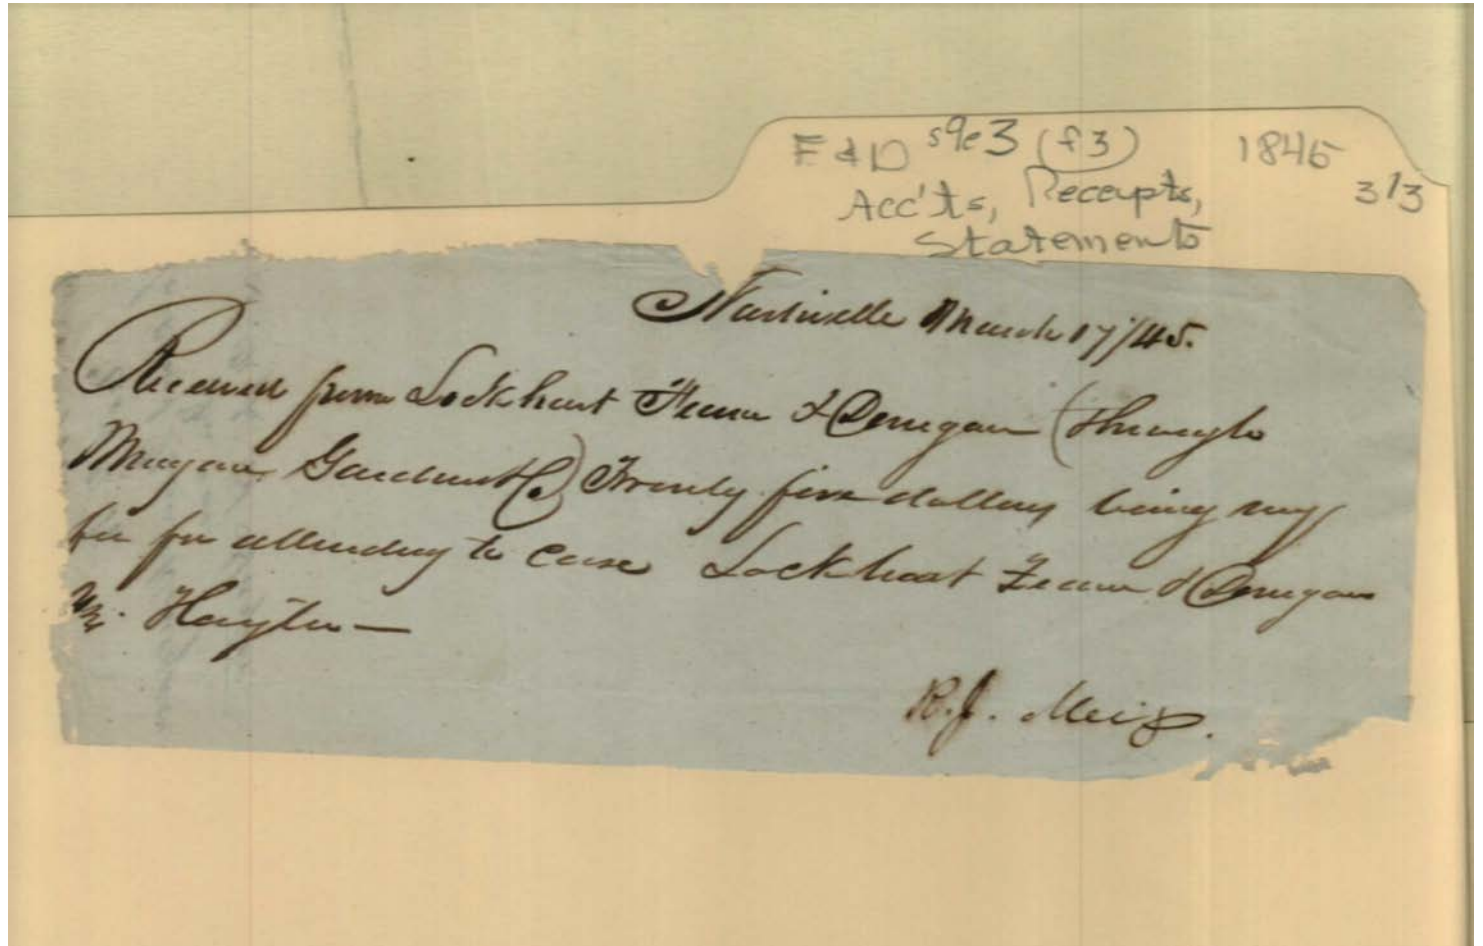 F & D s9e3 (f3) 1845
3/3
Acc'ts, Receipts,
Statements
Nashville March 17/45.
Received from Lockhart Fearn & Donegan (through
Morgan Gardner & Co) Twenty five dollars being my
fee for attending to case Lockhart Fearn & Donegan
vs. Hayter —
R.J. Meigs.